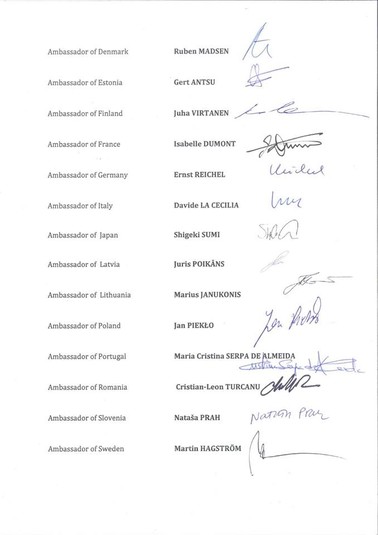 Ambassador of Denmark Ruben MADSEN
Ambassador of Estonia Gert ANTSU
Ambassador of Finland Juha VIRTANEN
Ambassador of France Isabelle DUMONT
Ambassador of Germany Ernst REICHEL
Ambassador of Italy Davide LA CECILIA
Ambassador of Japan Shigeki SUMI
Ambassador of Latvia Juris POIKĀNS
Ambassador of Lithuania Marius JANUKONIS
Ambassador of Poland Jan PIEKŁO
Ambassador of Portugal Maria Cristina SERPA DE ALMEIDA
Ambassador of Romania Cristian-Leon TURCANU
Ambassador of Slovenia Nataša PRAH
Ambassador of Sweden Martin HAGSTRÖM